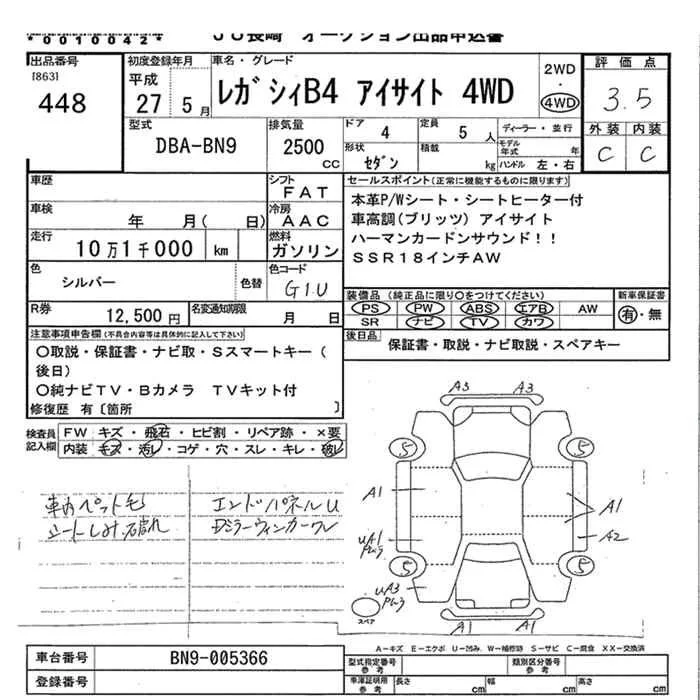 *0010042*
JU長崎 オークション出品申込書
出品番号
[863]
448
初度登録年月
平成
27 5月
車名・グレード
レガシィB4 アイサイト 4WD
2WD
・
4WD
評価点
3.5
外装 内装
C C
型式
DBA-BN9
排気量
2500
CC
ドア 4
定員 5 人
ディーラー・並行
形状 セダン
積載 kg
モデル年式 年
ハンドル 左・右
車歴
シフト
FAT
車検
年 月( 日)
冷房
AAC
走行
10万1千000 km
燃料
ガソリン
色
シルバー
色替
色コード
G1U
R券
12,500円
名変通知期限
月 日
セールスポイント(正常に機能するものに限ります)
本革P/Wシート・シートヒーター付
車高調(ブリッツ) アイサイト
ハーマンカードンサウンド!!
SSR18インチAW
装備品(純正品に限り○をつけてください)
PS PW ABS エアB AW
SR ナビ TV カワ
新車保証書
有・無
後日品
保証書・取説・ナビ取説・スペアキー
注意事項申告欄(不具合内容等は具体的に記入して下さい)
○取説・保証書・ナビ取・Sスマートキー(
後日)
○純ナビTV・Bカメラ TVキット付
修復歴 有〔箇所 〕
検査員
記入欄
FW キズ・飛石・ヒビ割・リペア跡・×要
内装 キズ・汚れ・コゲ・穴・スレ・キレ・破レ
車内ペット毛
シートしみ
エンドパネルU
A3 A3
5 5
A1
A1
uA1
A2
5 5
uA3
スペア
A1 A1
A-キズ E-エクボ U-凹み W-補修跡 S-サビ C-腐食 XX-交換済
車台番号
BN9-005366
登録番号
型式指定番号
参考
類別区分番号
参考
車庫証明用
参考
長さ cm
幅 cm
高さ cm